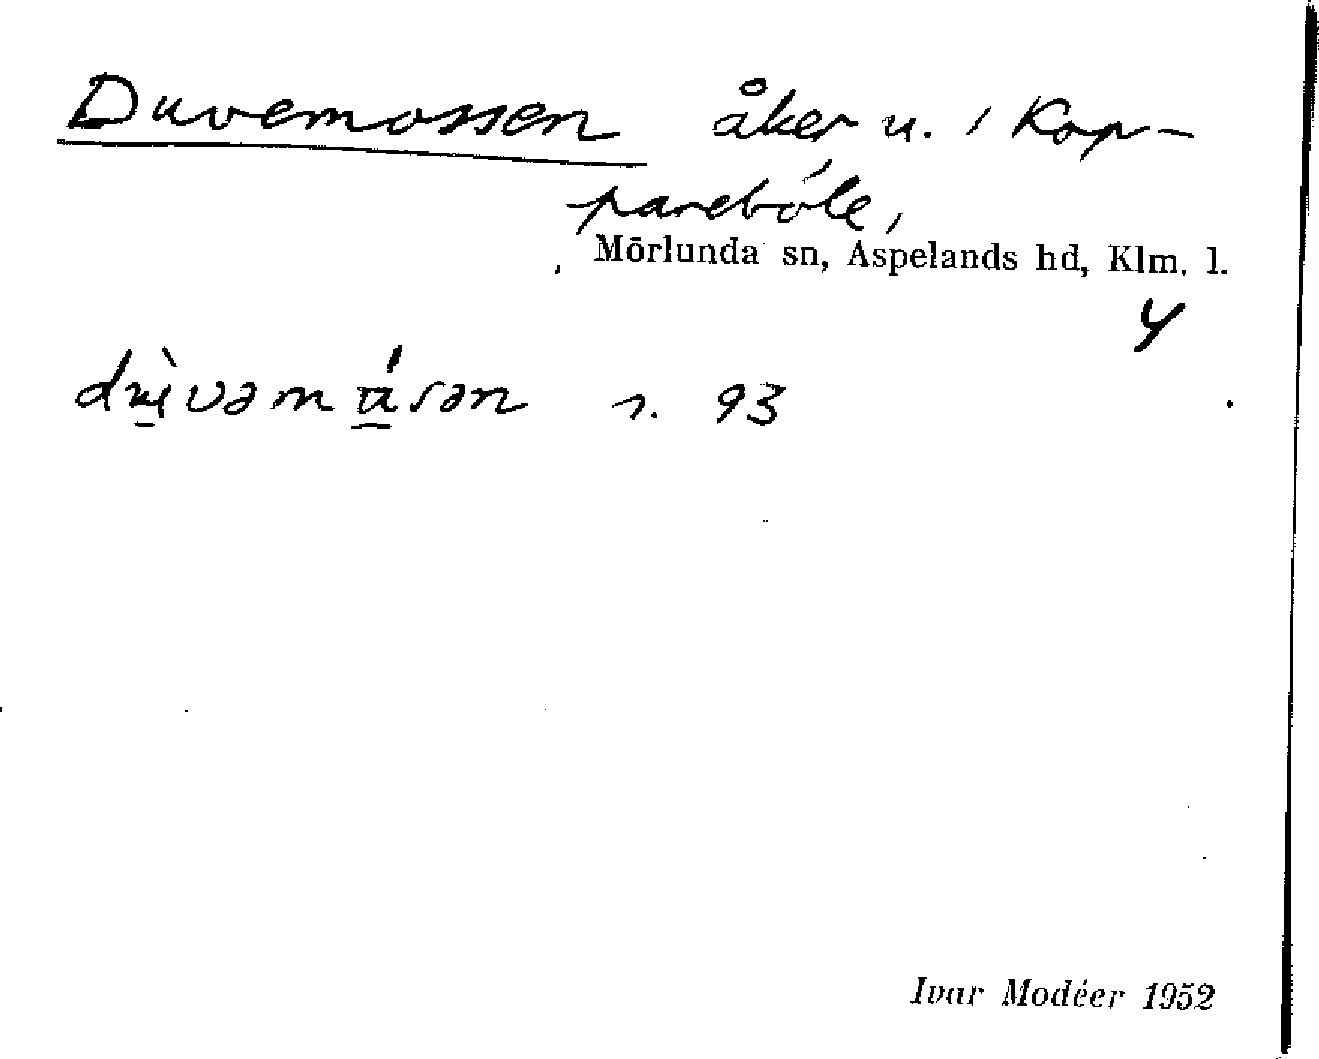 Duvemossen åker u. / Kop-
parebóle,
Mörlunda sn, Aspelands hd, Klm. l.
4
s. 93
Ivar Modéer 1952